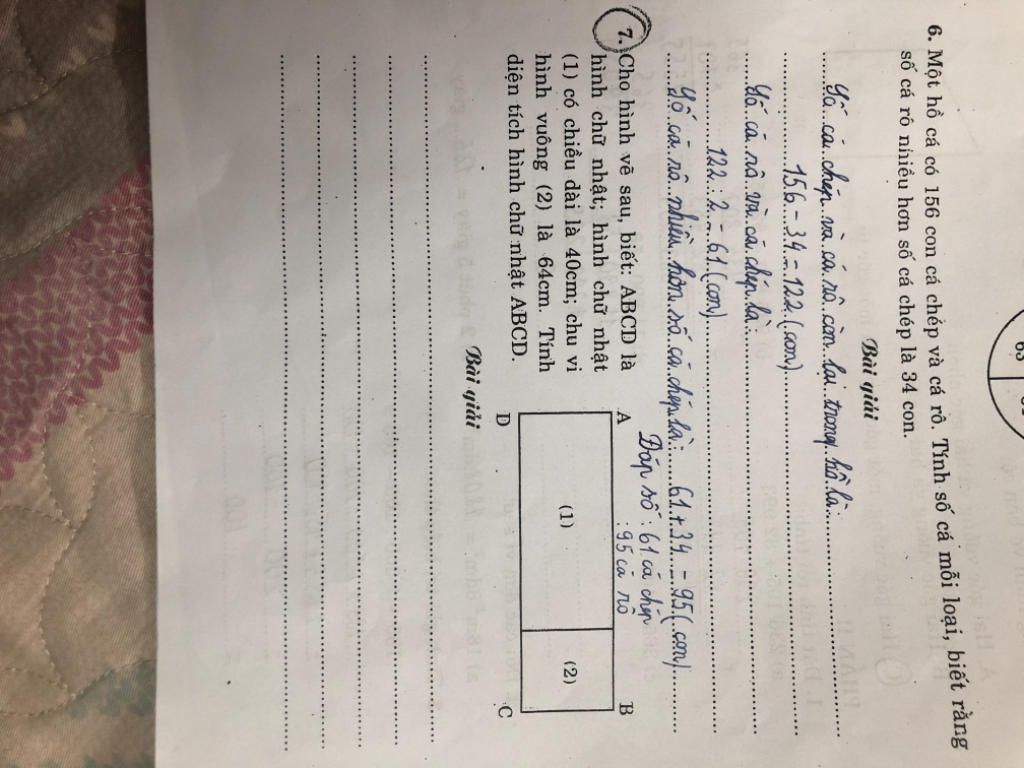 63
6. Một hồ cá có 156 con cá chép và cá rô. Tính số cá mỗi loại, biết rằng
số cá rô nhiều hơn số cá chép là 34 con.
Bài giải
Số cá chép và cá rô còn lại trong hồ là:
156 - 34 = 122 (con)
Số cá rô và cá chép là:
122 : 2 = 61 (con)
Số cá rô nhiều hơn số cá chép là: 61 + 34 = 95 (con)
Đáp số : 61 cá chép
: 95 cá rô
7. Cho hình vẽ sau, biết: ABCD là
hình chữ nhật; hình chữ nhật
(1) có chiều dài là 40cm; chu vi
hình vuông (2) là 64cm. Tính
diện tích hình chữ nhật ABCD.
A B
(1) (2)
D C
Bài giải